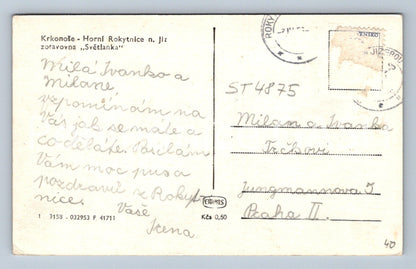 Krkonoše - Horní Rokytnice n. Jiz
zotavovna „Světlanka"
Milá Ivanko a
Milane,
vzpomínám na
Vás jak se máte a
co děláte. Posílám
Vám moc pus a
pozdravů z Rokyt
nice.
Vaše
Kčs 0,60
1 3158 - 032953 F 41711
ROKY
ST4875
Milan a Ivanka
Jungmannova
Praha II.
40